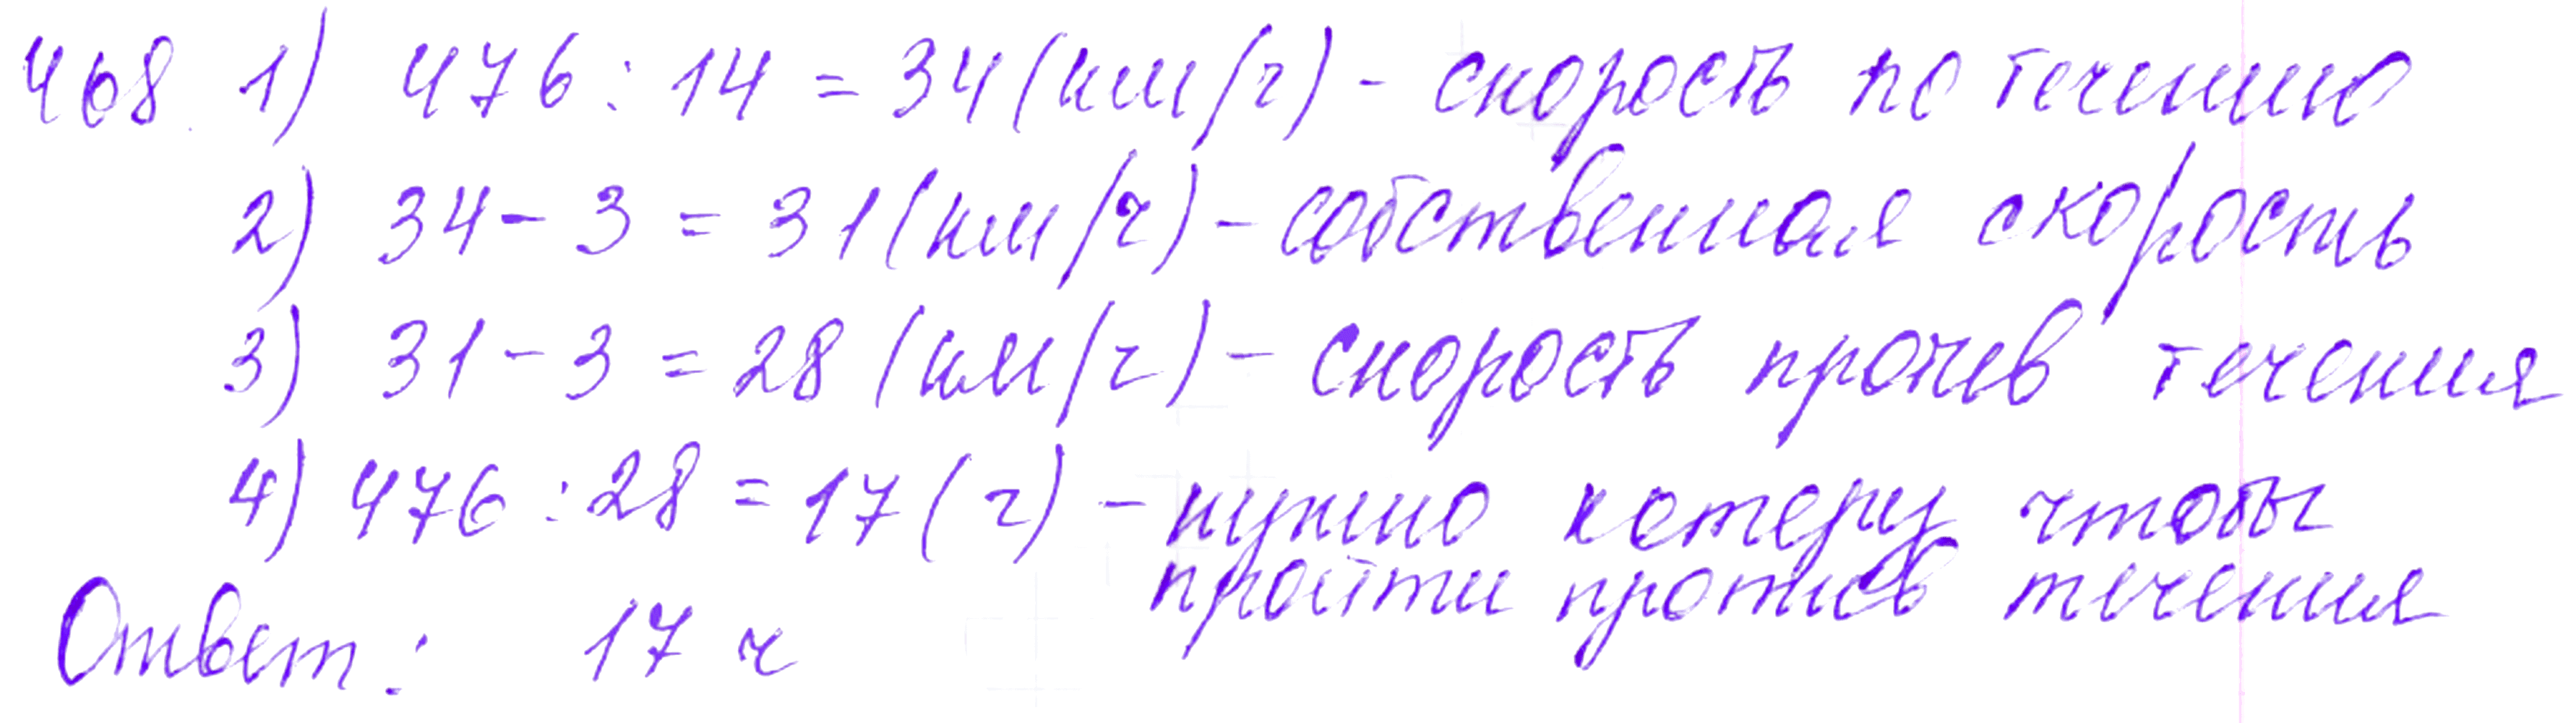 468. 1) 476 : 14 = 34 (км/ч) - скорость по течению
2) 34 - 3 = 31 (км/ч) - собственная скорость
3) 31 - 3 = 28 (км/ч) - скорость против течения
4) 476 : 28 = 17 (ч) - нужно катеру чтобы
пройти против течения
Ответ: 17 ч